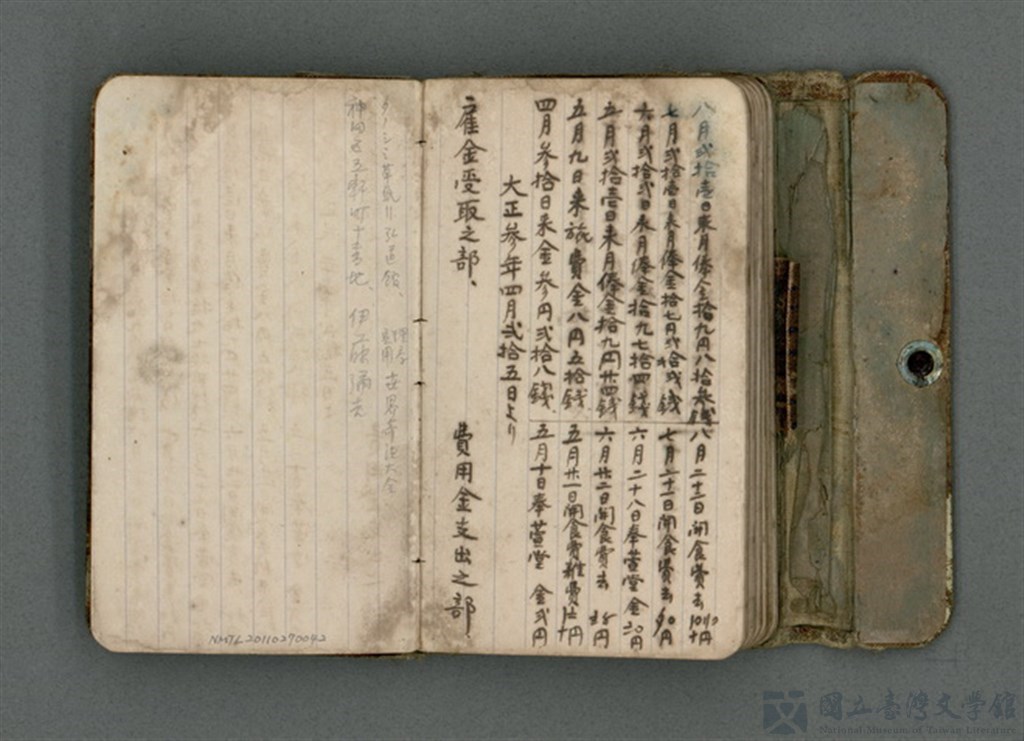 雇金受取之部、
費用金支出之部、
大正参年四月弐拾五日より
四月参拾日来金参円弐拾八銭
五月十日奉萱堂 金弐円
五月九日来旅費金八円五拾銭
五月廿一日開食費雜費 円
五月弐拾壱日来月俸金拾九円廿四銭
六月廿二日開食費去 円
六月弐拾弐日来月俸金拾九七拾四銭
六月二十八日奉萱堂金 20円
七月弐拾壱日来月俸金拾七円弐拾弐銭
七月二十二日開食費去 10円
八月弐拾壱日来月俸金拾九円八拾参銭
八月二十二日開食費去 円
神田区五軒町十 番地、
世界
NMTL20110270042
國立臺灣文學館
National Museum of Taiwan Literature